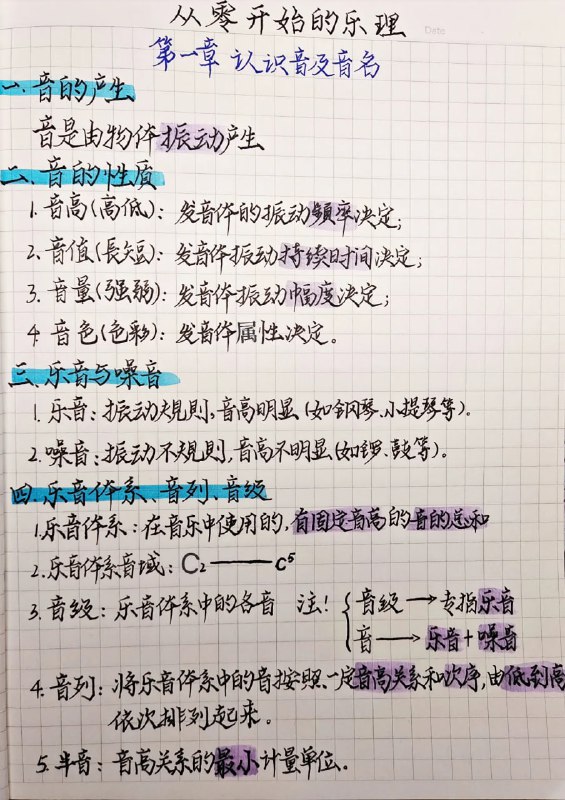 从零开始的乐理
Date
第一章 认识音及音名
一.音的产生
音是由物体振动产生
二.音的性质
1.音高(高低):发音体的振动频率决定;
2.音值(長短):发音体振动持续时间决定;
3.音量(强弱):发音体振动幅度决定;
4.音色(色彩):发音体属性决定。
三.乐音与噪音
1.乐音:振动规则,音高明显(如钢琴.小提琴等)。
2.噪音:振动不规则,音高不明显(如锣.鼓等)。
四.乐音体系、音列、音级
1.乐音体系:在音乐中使用的,有固定音高的音的总和
2.乐音体系音域:C₂——c⁵
3.音级:乐音体系中的各音 注!{音级→专指乐音
音→乐音+噪音
4.音列:将乐音体系中的音按照一定音高关系和次序,由低到高
依次排列起来。
5.半音:音高关系的最小计量单位.